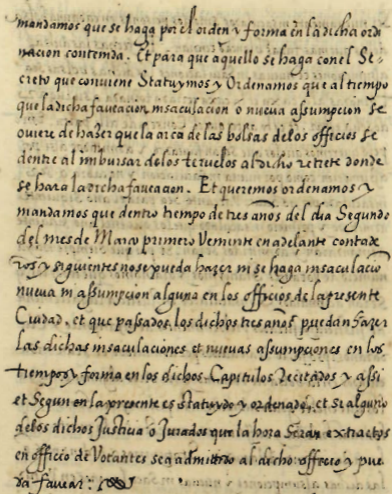 mandamos que se haga por el orden y forma en la dicha ordi
nacion contenida. Et para que aquello se haga con el Se-
creto que conviene Statuymos y Ordenamos que al tiempo
que la dicha faveacion, insaculacion o nueva assumpcion se
oviere de hazer que la arca de las bolsas de los officios se
dentre al imbursar de los teruelos al dicho retrete donde
se hara la dicha faveacion. Et queremos ordenamos y
mandamos que dentro tiempo de tres años del dia Segundo
del mes de Março primero Veniente en adelante contade
ros y siguientes no se pueda hazer ni se haga insaculacion
nueva ni assumpcion alguna en los officios de la presente
Ciudad. et que passados los dichos tres años puedan hazer
las dichas insaculaciones et nuevas assumpciones en los
tiempos y forma en los dichos Capitulos Recitados y assi
et Segun en la presente es statuydo y ordenado, et si alguno
de los dichos Justicia o Jurados que la hora Seran extractos
en officio de Votantes sea admitido al dicho officio y pue
da favear: